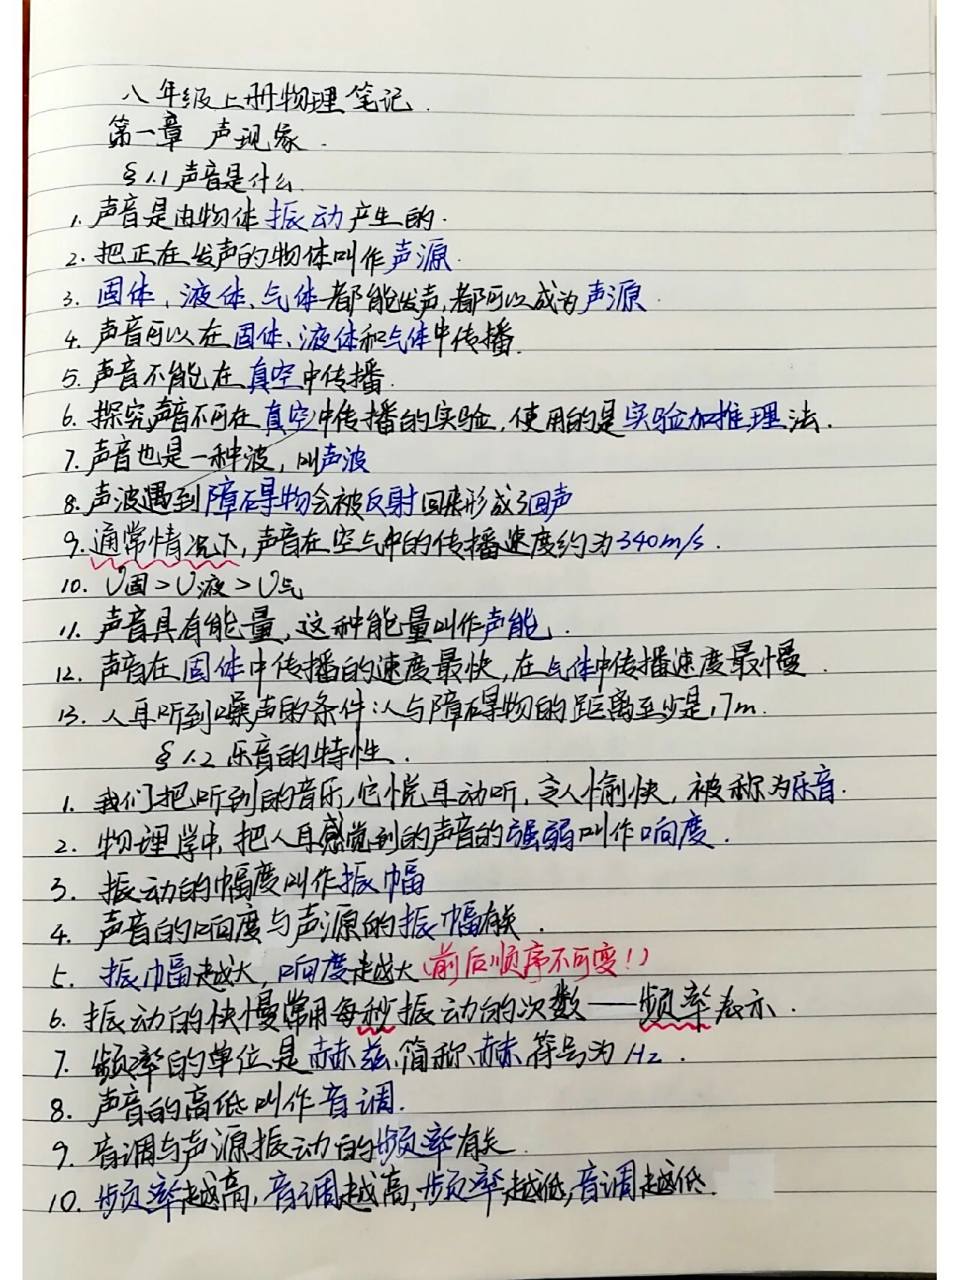 八年级上册物理笔记.
第一章 声现象.
§1.1声音是什么
1. 声音是由物体振动产生的.
2. 把正在发声的物体叫作声源.
3. 固体、液体、气体都能发声,都可以成为声源.
4. 声音可以在固体、液体和气体中传播.
5. 声音不能在真空中传播.
6. 探究声音不可在真空中传播的实验,使用的是实验加推理法.
7. 声音也是一种波,叫声波
8. 声波遇到障碍物会被反射回来形成了回声
9. 通常情况下,声音在空气中的传播速度约为340m/s.
10. V固>V液>V气
11. 声音具有能量,这种能量叫作声能.
12. 声音在固体中传播的速度最快,在气体中传播速度最慢.
13. 人耳听到噪声的条件:人与障碍物的距离至少是17m.
§1.2 乐音的特性.
1. 我们把听到的音乐,它悦耳动听,令人愉快,被称为乐音.
2. 物理学中,把人耳感觉到的声音的强弱叫作响度.
3. 振动的幅度叫作振幅
4. 声音的响度与声源的振幅有关.
5. 振幅越大,响度越大(前后顺序不可变!)
6. 振动的快慢常用每秒振动的次数——频率表示.
7. 频率的单位是赫兹,简称赫,符号为Hz.
8. 声音的高低叫作音调.
9. 音调与声源振动的频率有关.
10. 频率越高,音调越高,频率越低,音调越低.